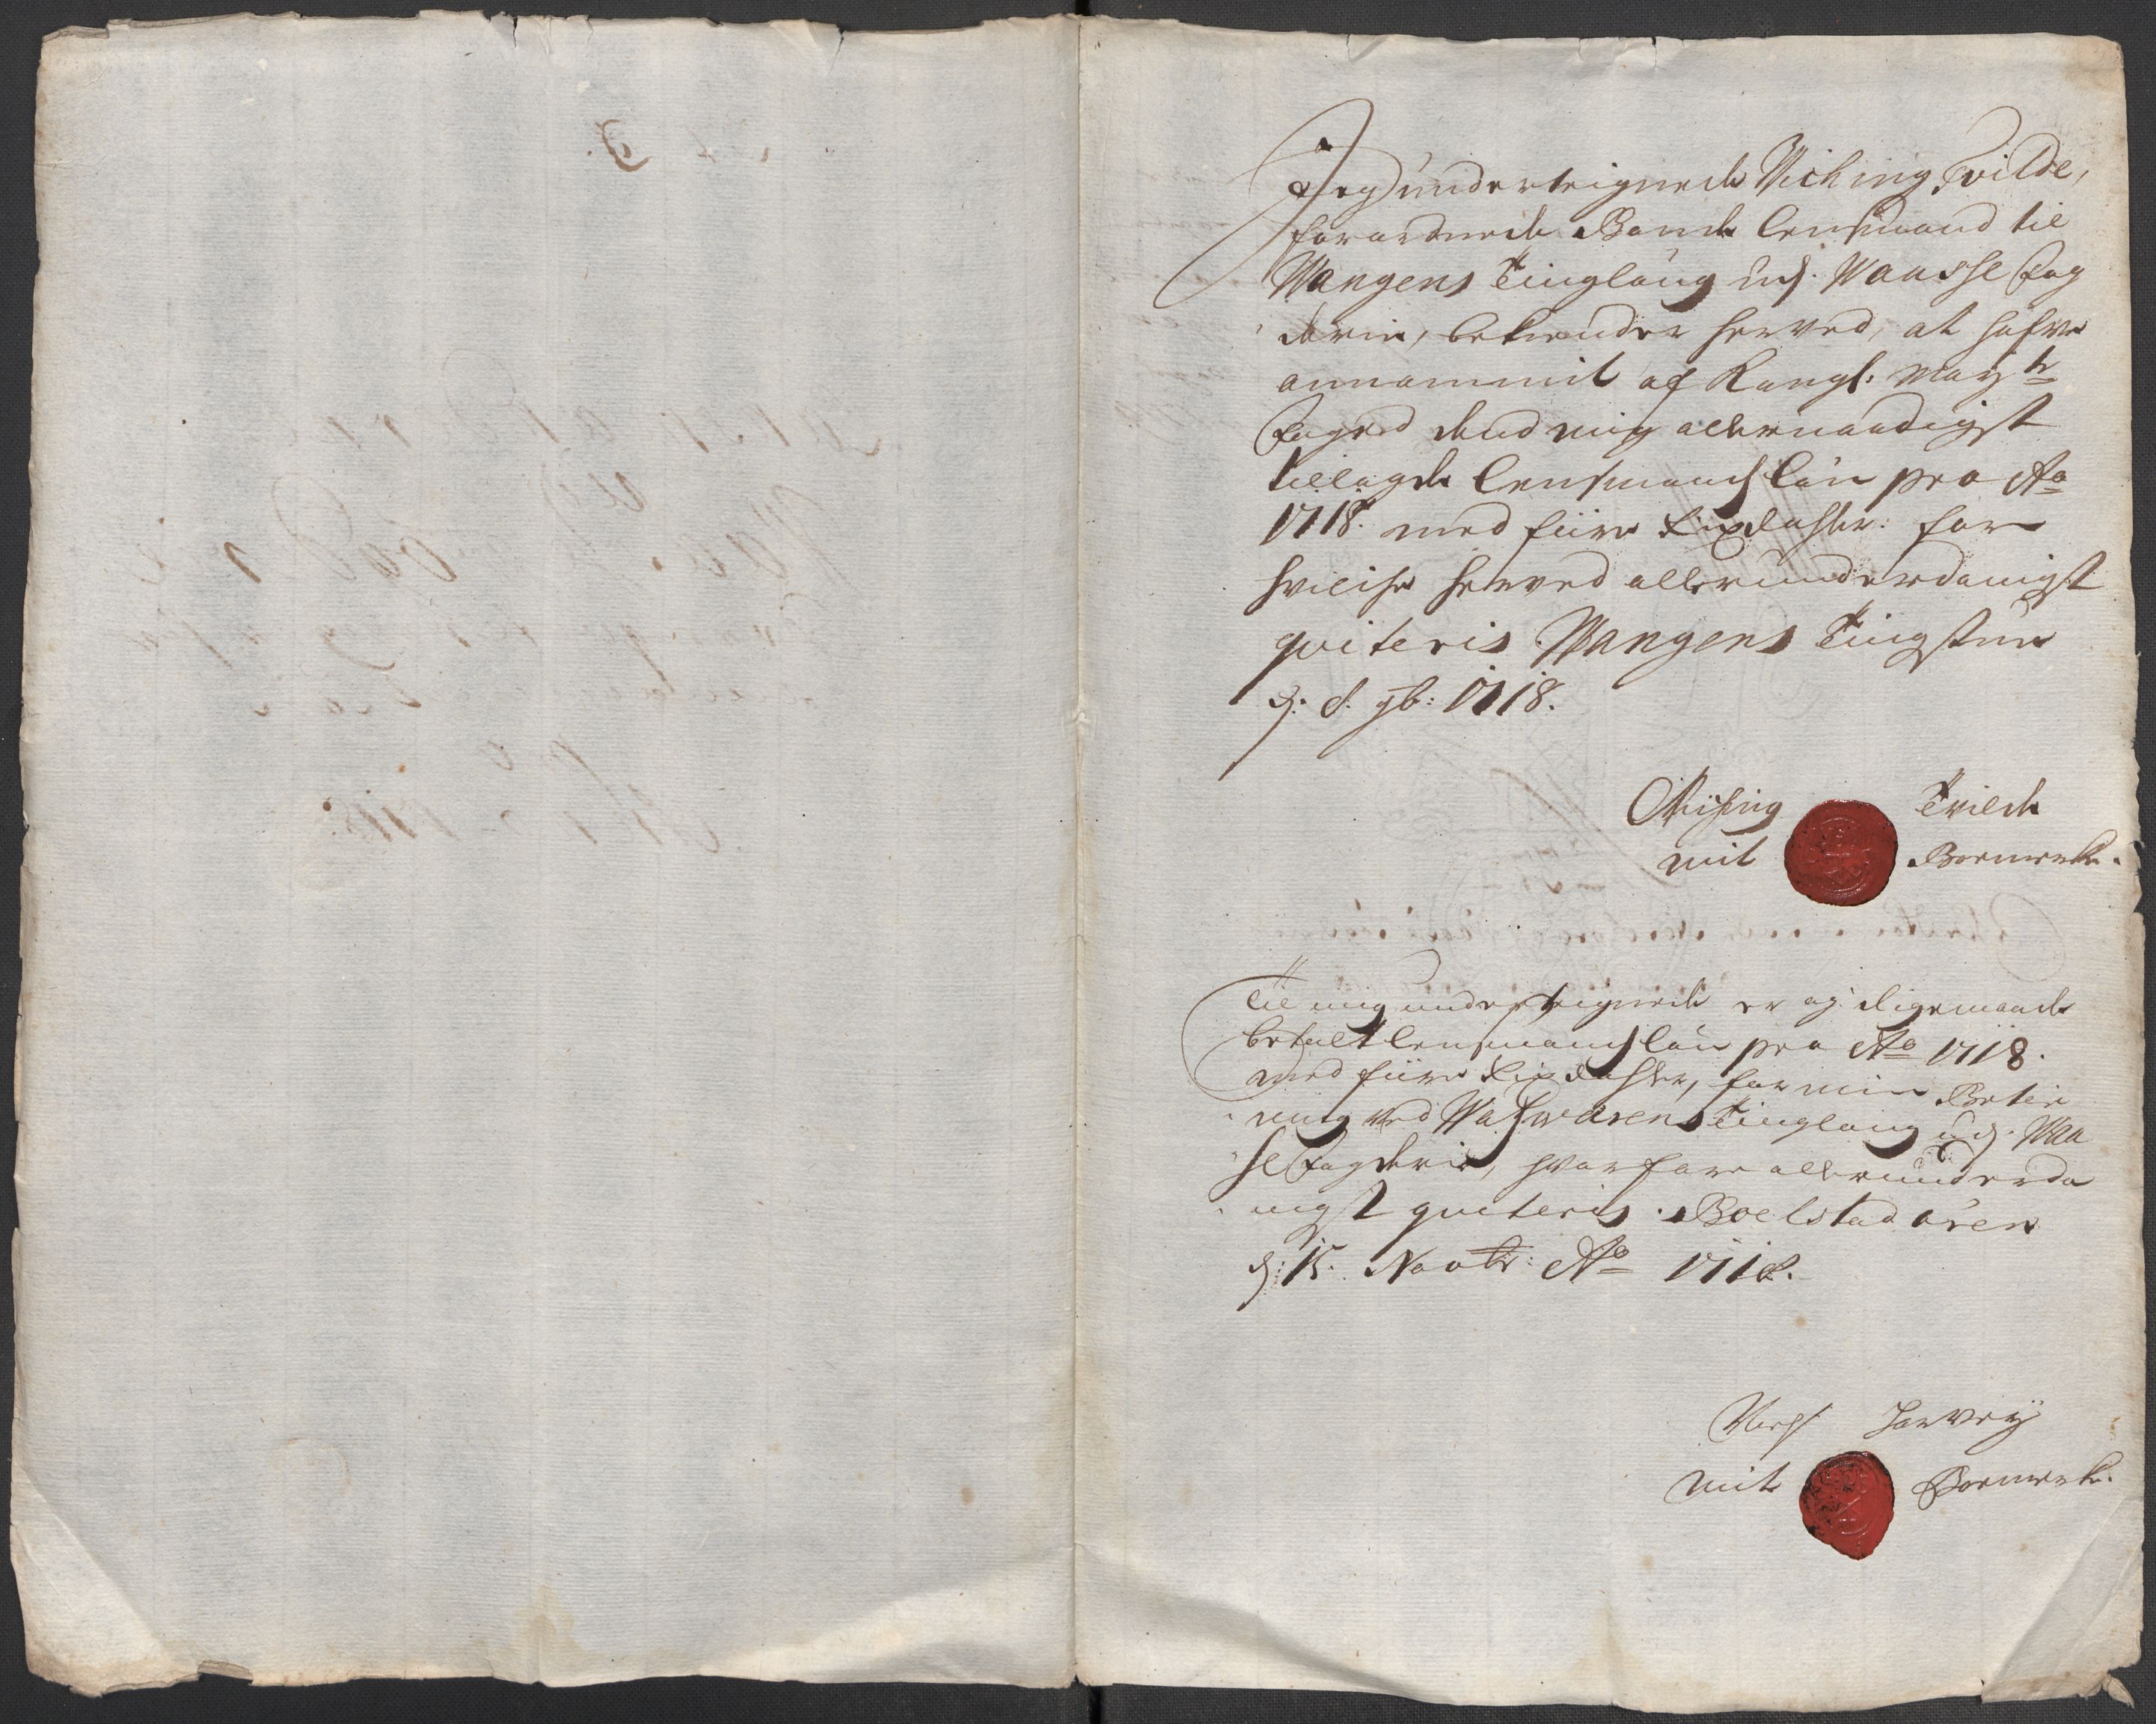 Jeg underteignede Viching Tvilde,
forordnede Bonde Lensmand til
Wangens Tinglaug udj Waasse Fog
derie, bekiender herved, at hafve
annammit af Kongl: May:ts
Foged dend mig allernaadigst
tillagde Lensmands Løn pro Ao
1718. med fiire Rixdahler: for
hvilche herved allerunderdanigst
qviteris Wangens Tingstue
d: 8: 9b: 1718.
Viching Tvilde
mit Boemerke.
Til mig underteignede er og ligemaade
betalt Lensmands løn pro Ao 1718.
med fiire Rixdahler, for min Betie
ning ved Tinglaug udj Waa
se Fogderie, hvorfore allerunderda
nigst qviteris. Boelstad øren
d: 15. Novbr: Ao 1718.
mit Boemerke.